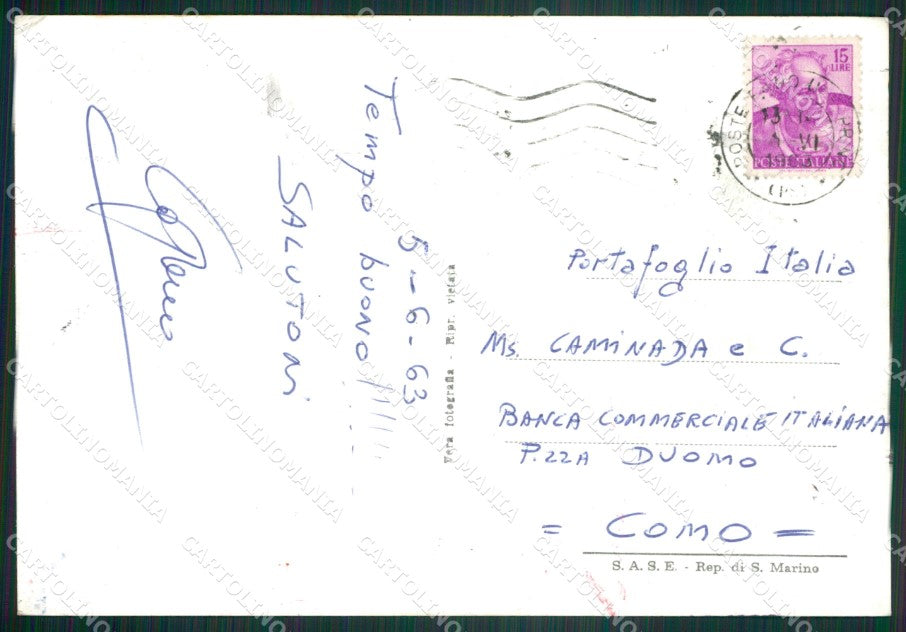 5-6-63
Tempo buono!!!!!!
SALUTONI
Vera fotografia - Ripr. vietata
15
LIRE
POSTE ITALIANE
Portafoglio Italia
Ms. CAMINADA e C.
BANCA COMMERCIALE ITALIANA
P.zza DUOMO
= COMO =
S. A. S. E. - Rep. di S. Marino
CARTOLINOMANIA